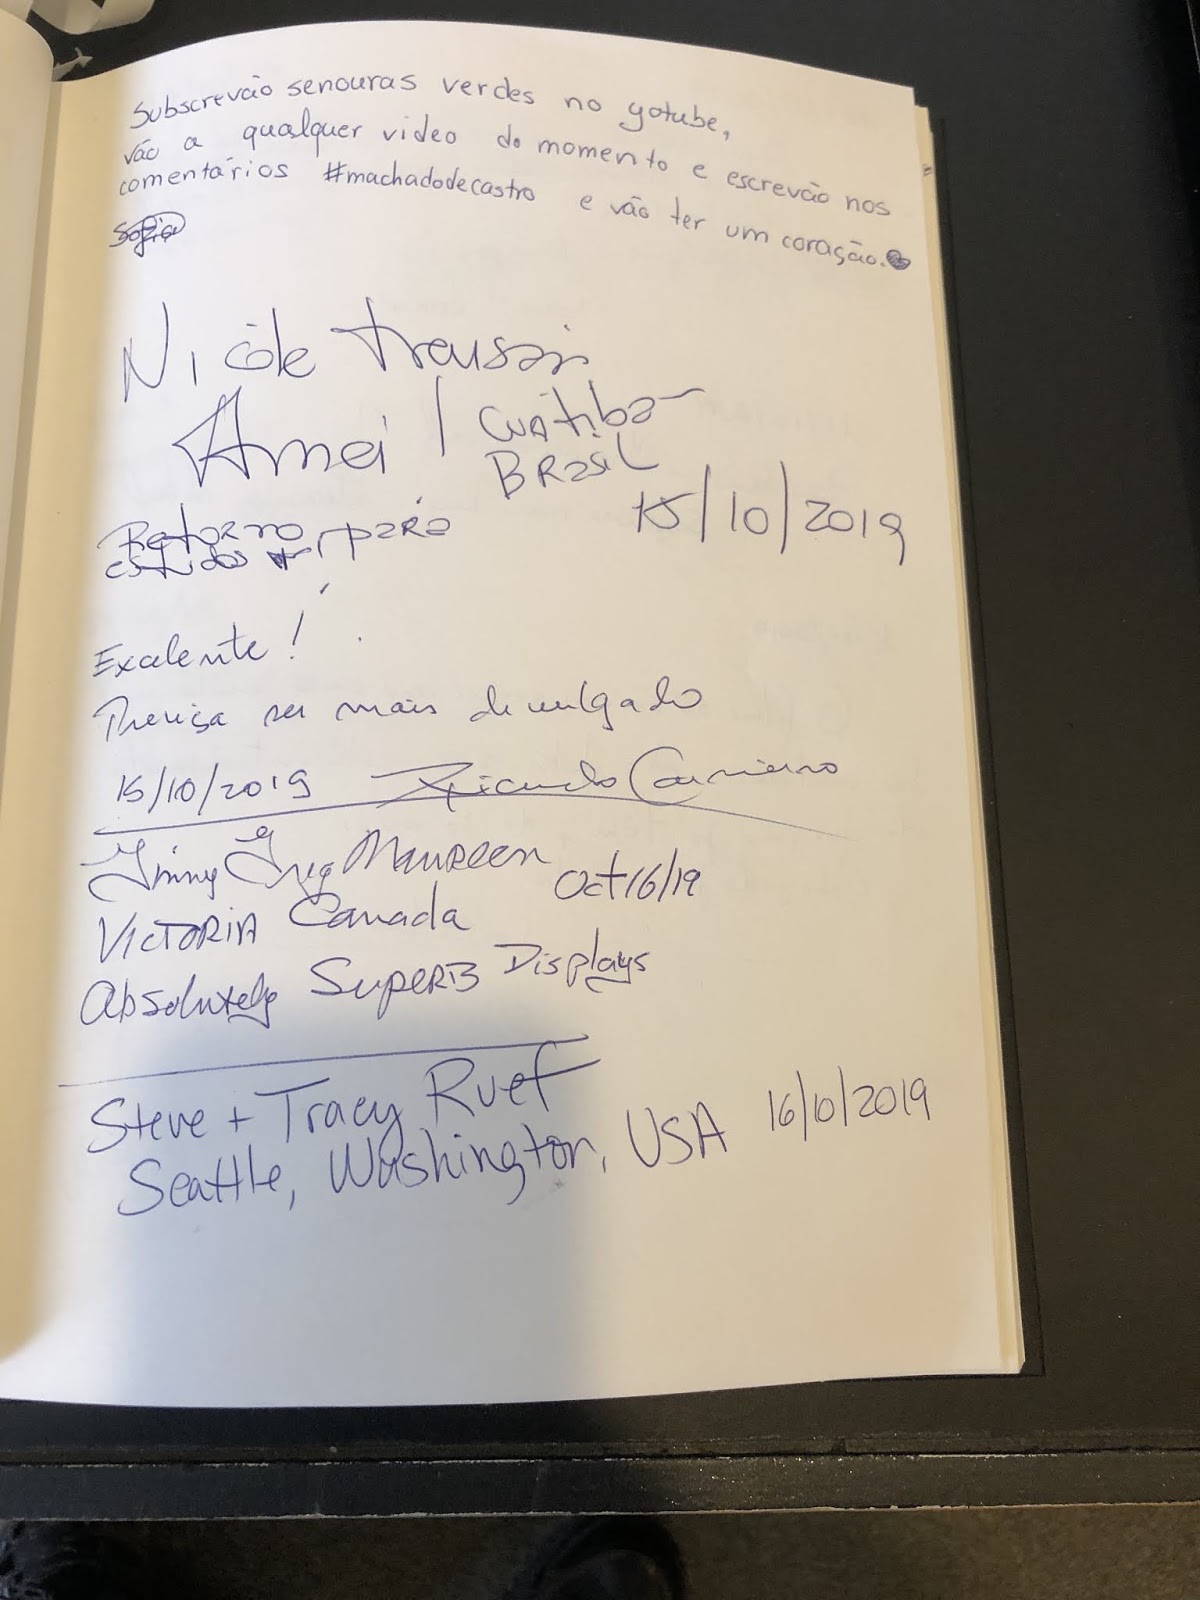 Subscrevão senouras verdes no yotube,
vão a qualquer video do momento e escrevão nos
comentários #machadodecastro e vão ter um coração.
Sofia
Nicole
Amei / Curitiba
Brasil
15/10/2019
Retorno para
estudos
Excelente!
Precisa ser mais divulgado
15/10/2019 Ricardo
Ginny Greg Maureen Oct 16/19
VICTORIA Canada
Absolutely SUPERB Displays
Steve + Tracy Ruef
Seattle, Washington, USA 16/10/2019